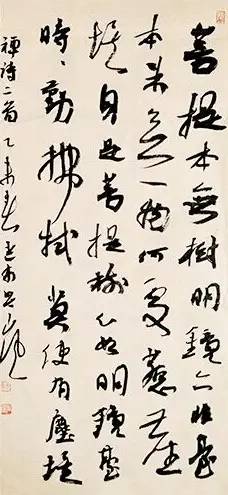 菩提本無樹明鏡亦非臺
本來無一物何處惹塵
埃身是菩提樹心如明鏡臺
時々勤拂拭莫使有塵埃
禪詩二首乙未春